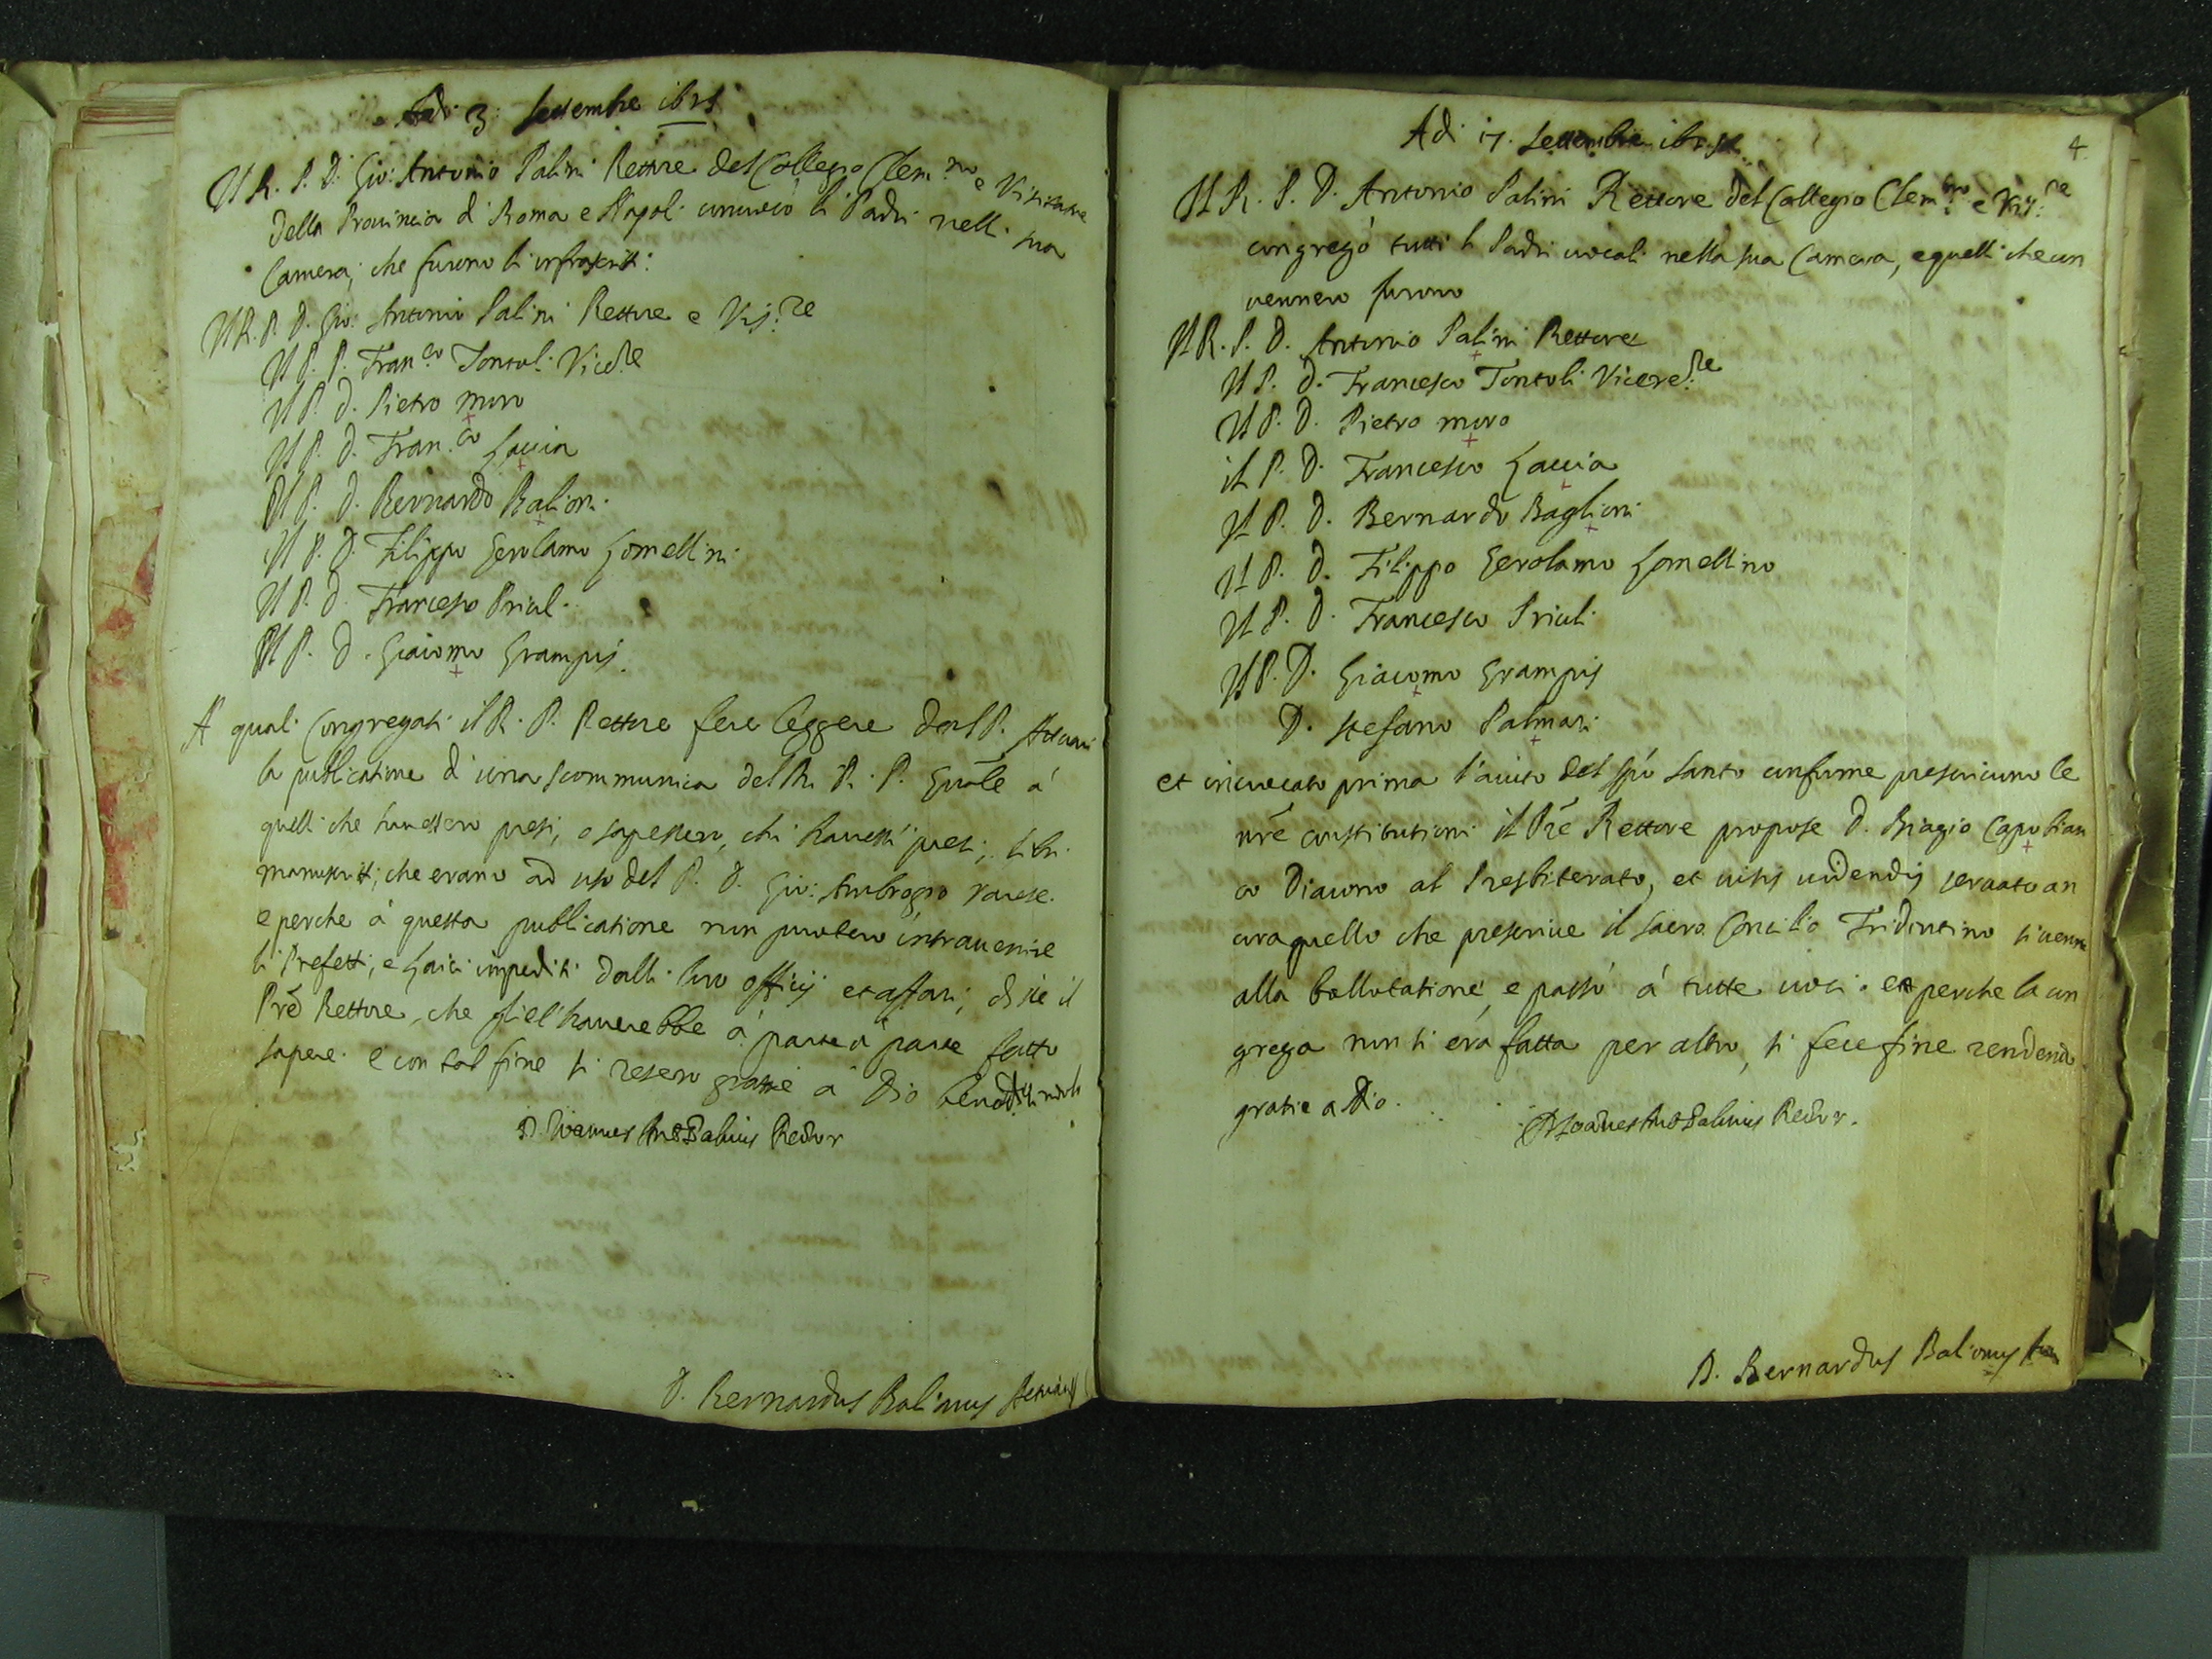 Adi 3. Settembre
Il R. P. D. Gio: Antonio Palini Rettore del Collegio Clem.no e Visitatore
della Prouincia di Roma e Napoli conuocò li Padri nella sua
Camera, che furono li infrascritti:
Il R. P. D. Gio: Antonio Palini Rettore e Vis.re
Il P. D. Fran.co Tontoli Vice.re
Il P. D. Pietro moro
Il P. D. Fran.co Laccia
Il P. D. Bernardo Balioni
Il P. D. Filippo Gerolamo Lomellini
Il P. D. Francesco Priuli
Il P. D. Giacomo Grampis
A quali Congregati il R. P. Rettore fece leggere dal P.
la publicatione d'una scommunica del R. P. Gnãle á
quelli che hauessero presi, o sapessero, chi hauessi presi, libri
manuscritti, che erano ad uso del P. D. Gio: Ambrogio Varese.
e perche á questa publicatione non puotero intrauenire
li Prefetti, e Laici impediti dalli loro officij et affari, disse il
Prẽ Rettore, che gliel'hauerebbe á parte á parte fatto
sapere. e con tal fine si resero gratie á Dio
D. Ioannes Ant.o Palinus Rector
D. Bernardus Balionus
4.
Adi 17. Settembre
Il R. P. D. Antonio Palini Rettore del Collegio Clem.no e Vis.re
congregó tutti li Padri uocali nella sua Camera, e quelli che con
uennero furono
Il R. P. D. Antonio Palini Rettore
Il P. D. Francesco Tontoli Vicere.re
Il P. D. Pietro moro
il P. D. Francesco Laccia
Il P. D. Bernardo Baglioni
Il P. D. Filippo Gerolamo Lomellino
Il P. D. Francesco Priuli
Il P. D. Giacomo Grampis
D. Stefano Palmari
et inuocato prima l'aiuto del Spó Santo conforme prescriuono le
nrẽ constitutioni il Prẽ Rettore propose D. Biagio Capobian
co Diacono al Presbiterato, et uisis uidendis seruato an
cora quello che prescriue il sacro Concilio Tridentino si uenne
alla ballotatione, e passó á tutte uoci. et perche la con
grega non si era fatta per altro, si fece fine rendendo
gratie a Dio.
D. Ioannes Ant.o Palinus Rector.
D. Bernardus Balionus